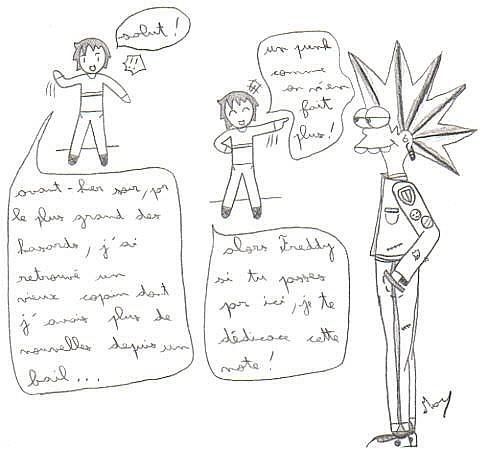 salut !
avant-hier soir, par
le plus grand des
hasards, j'ai
retrouvé un
vieux copain dont
j'avais plus de
nouvelles depuis un
bail...
un punk
comme
on n'en
fait
plus !
alors Freddy
si tu passes
par ici, je te
dédicace cette
note !